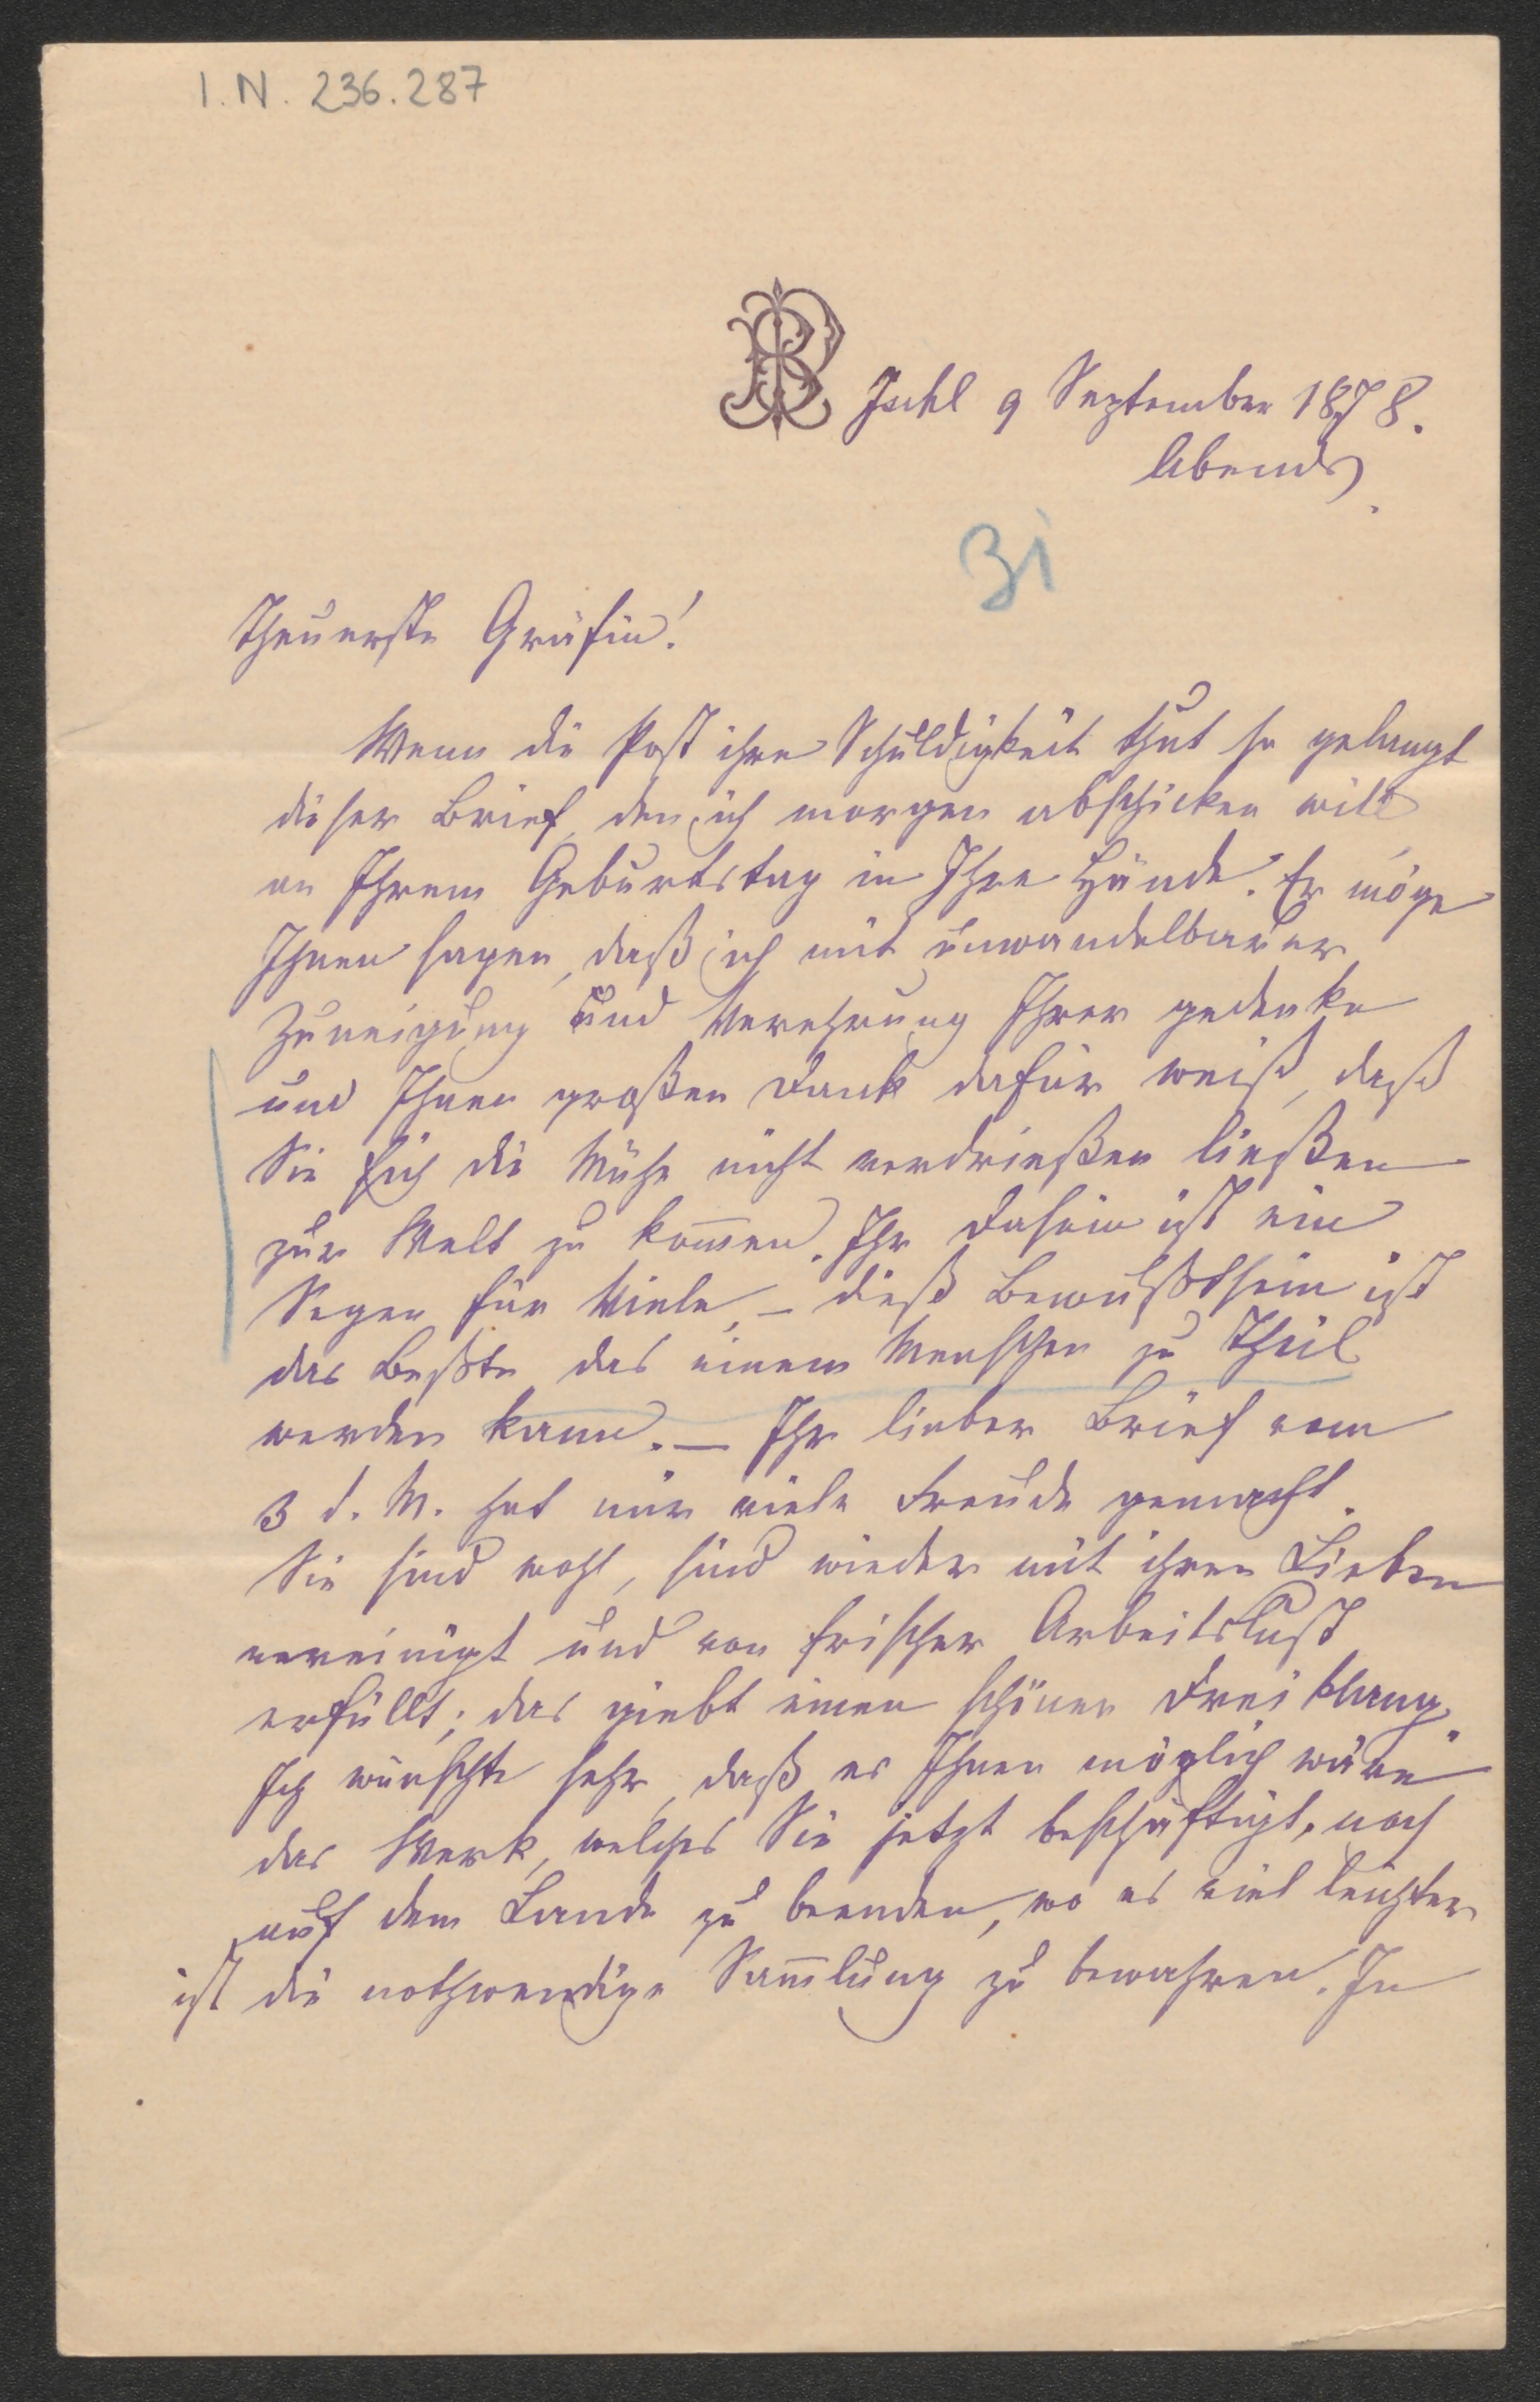 I.N. 236.287
Ischl 9 September 1878.
Abends.
31
Theuerste Gräfin!
Wenn die Post ihre Schuldigkeit thut so gelangt
dieser Brief, den ich morgen abschicken will
an Ihrem Geburtstag in Ihre Hände. Er möge
Ihnen sagen, daß ich mit unwandelbarer
Zuneigung und Verehrung Ihrer gedenke
und Ihnen großen Dank dafür weiß, daß
Sie sich die Mühe nicht verdrießen ließen
zur Welt zu kom̅en. Ihr Dasein ist ein
Segen für Viele, – dieß Bewußtsein ist
das Beßte das einem Menschen zu Theil
werden kann. – Ihr lieber Brief vom
3 d. M. hat mir viele Freude gemacht.
Sie sind wohl, sind wieder mit ihren Lieben
vereinigt und von frischer Arbeitslust
erfüllt; das giebt einen schönen Dreiklang.
Ich wünschte sehr, daß es Ihnen möglich wäre
das Werk, welches Sie jetzt beschäftigt, noch
auf dem Lande zu beenden, wo es viel leichter
ist die nothwendige Sam̅lung zu bewahren. In